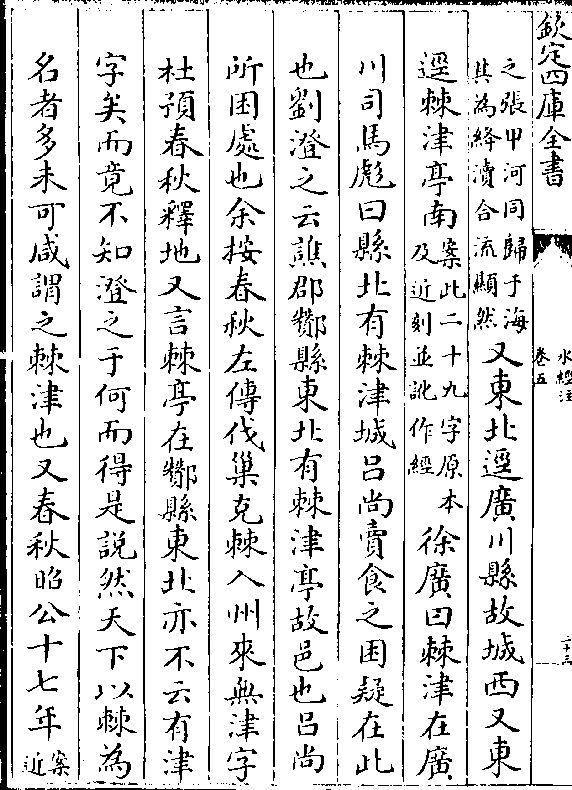 欽定四庫全書
水經注
卷五
二十三
之張甲河同歸于海
其為絳瀆合流顯然
又東北逕廣川縣故城西又東
逕棘津亭南
案此二十九字原本
及近刻並訛作經
徐廣曰棘津在廣
川司馬彪曰縣北有棘津城吕尚賣食之困疑在此
也劉澄之云譙郡酇縣東北有棘津亭故邑也吕尚
所困處也余按春秋左傳伐巢克棘入州來無津字
杜預春秋釋地又言棘亭在酇縣東北亦不云有津
字矣而竟不知澄之于何而得是說然天下以棘為
名者多未可咸謂之棘津也又春秋昭公十七年
案
近